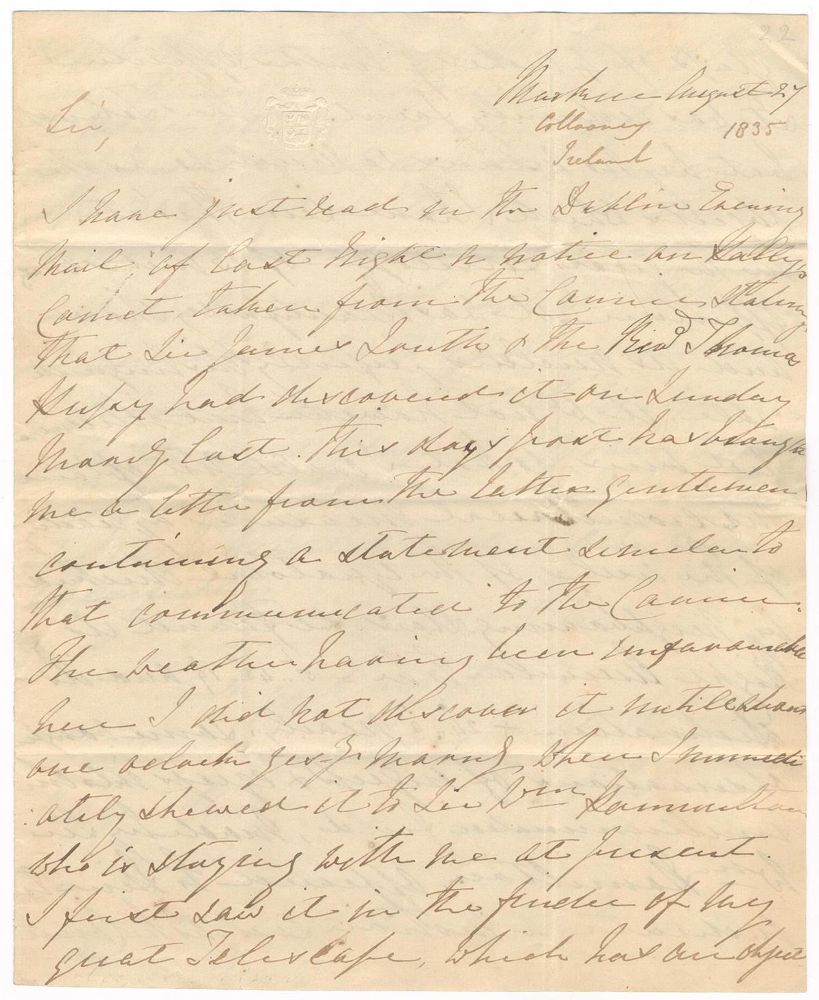 22
Markree August 27
Collooney 1835
Ireland
Sir,
I have just read in the Dublin Evening
Mail, of last Night a notice on Hally's
Comet, taken from the Courier stating
that Sir James South & the Revd Thomas
Hussey had discovered it on Sunday
Morng last. This days post has brought
me a letter from the latter gentlemen
containing a statement similar to
that communicated to the Courier.
The weather having been unfavourable
here I did not discover it untill about
one oclock yesy Morng, when I immedi
ately shewed it to Sir Wm Hammilton
who is staying with me at present.
I first saw it in the finder of my
great Telescope, which has an object